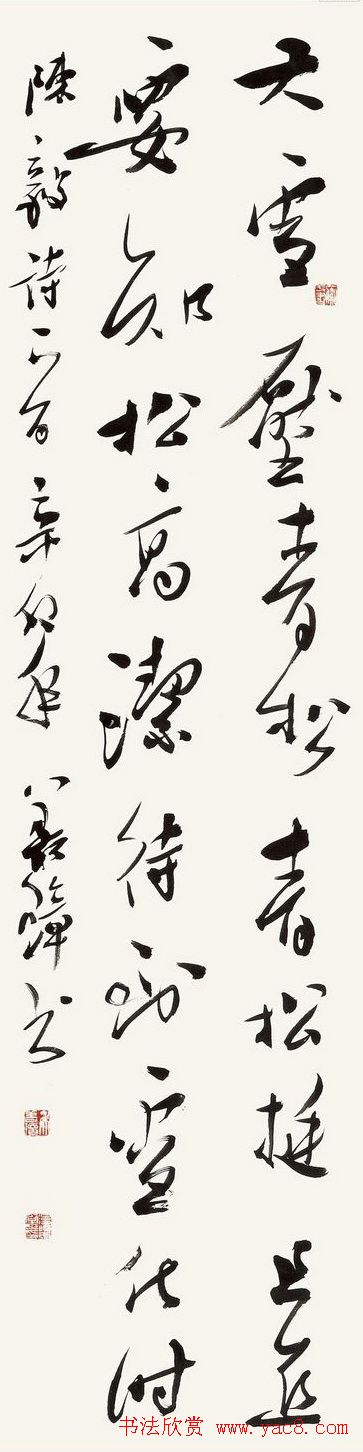 大雪壓青松青松挺且直
要知松高潔待到雪化时
陳毅诗一首辛卯年书
书法欣赏 www.yac8.com